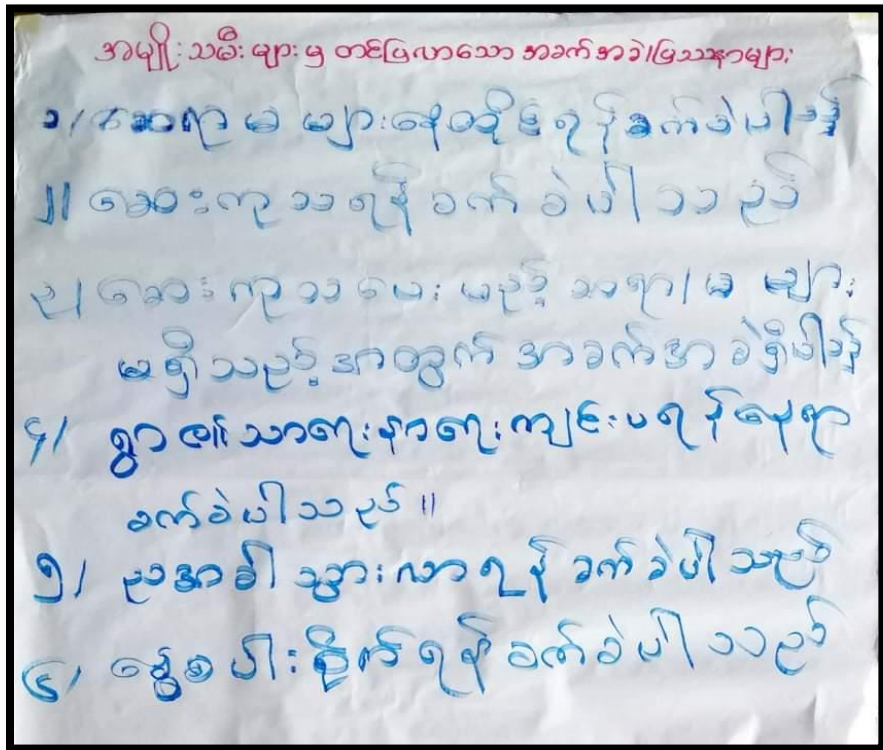 အမျိုးသမီးများမှ တင်ပြလာသော အခက်အခဲ၊ပြဿနာများ
၁/ ဆရာမ များနေထိုင်ရန်ခက်ခဲပါသည်
၂၊ ဆေးကုသရန်ခက်ခဲပါသည်
၃၊ ဆေးကုသပေးမည့် ဆရာ/မ များ
မရှိသည့်အတွက် အခက်အခဲရှိပါသည်
၄/ ရွာ၏သာရေးနာရေးကျင်းပရန်နေရာ
ခက်ခဲပါသည်။
၅/ ညအခါ သွားလာရန် ခက်ခဲပါသည်
၆/ နွေစပါးစိုက်ရန်ခက်ခဲပါသည်